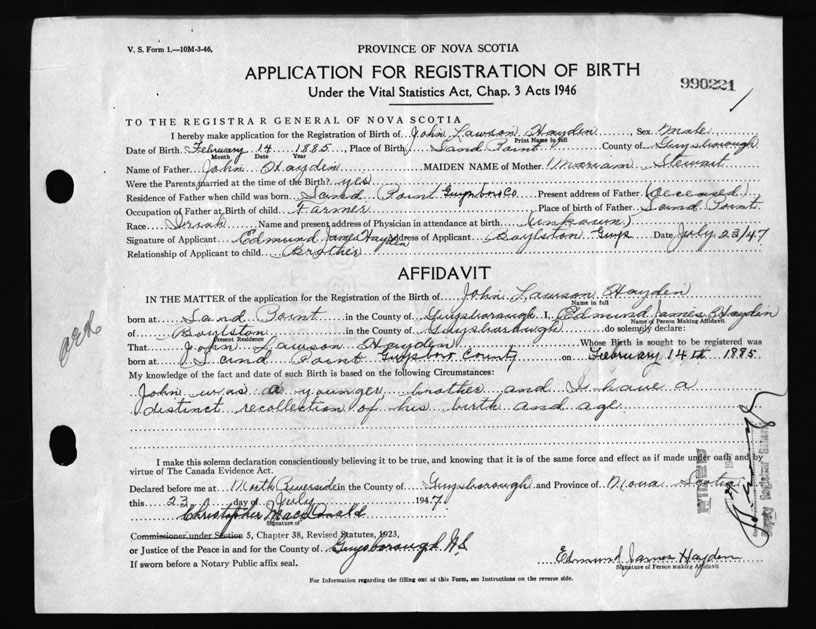 V. S. Form 1.—10M-3-46,
PROVINCE OF NOVA SCOTIA
APPLICATION FOR REGISTRATION OF BIRTH
Under the Vital Statistics Act, Chap. 3 Acts 1946
990221
1
TO THE REGISTRAR GENERAL OF NOVA SCOTIA
I hereby make application for the Registration of Birth of John Lawson Hayden, Sex Male
Print Name in full
Date of Birth February 14 1885, Place of Birth Sand Point County of Guysborough
Month Date Year
Name of Father John Hayden MAIDEN NAME of Mother Mariam Stewart
Were the Parents married at the time of the Birth? yes
Residence of Father when child was born Sand Point Guysboro Co Present address of Father (Deceased)
Occupation of Father at Birth of child Farmer Place of birth of Father Sand Point
Race Irish Name and present address of Physician in attendance at birth (unknown)
Signature of Applicant Edmund James Hayden Address of Applicant Boylston Guys Date July 23/47
Relationship of Applicant to child Brother
AFFIDAVIT
IN THE MATTER of the application for the Registration of the Birth of John Lawson Hayden
Name in full
born at Sand Point in the County of Guysborough I, Edmund James Hayden
Name of Person Making Affidavit
of Boylston in the County of Guysborough do solemnly declare:
Present Residence
That John Lawson Hayden Whose Birth is sought to be registered was
born at Sand Point Guysboro County on February 14th 1885.
My knowledge of the fact and date of such Birth is based on the following Circumstances:
John was a younger brother and I have a
distinct recollection of his birth and age
I make this solemn declaration conscientiously believing it to be true, and knowing that it is of the same force and effect as if made under oath and by
virtue of The Canada Evidence Act.
Declared before me at North Riverside in the County of Guysborough and Province of Nova Scotia
this 23 day of July 1947.
Christopher MacDonald
Signature of
Commissioner under Section 5, Chapter 38, Revised Statutes, 1923,
or Justice of the Peace in and for the County of Guysborough N.S.
If sworn before a Notary Public affix seal.
Edmund James Hayden
Signature of Person making Affidavit
For Information regarding the filling out of this Form, see Instructions on the reverse side.
Deputy Registrar General